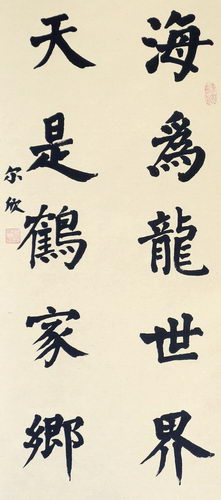 海為龍世界
天是鶴家鄉
尔欣